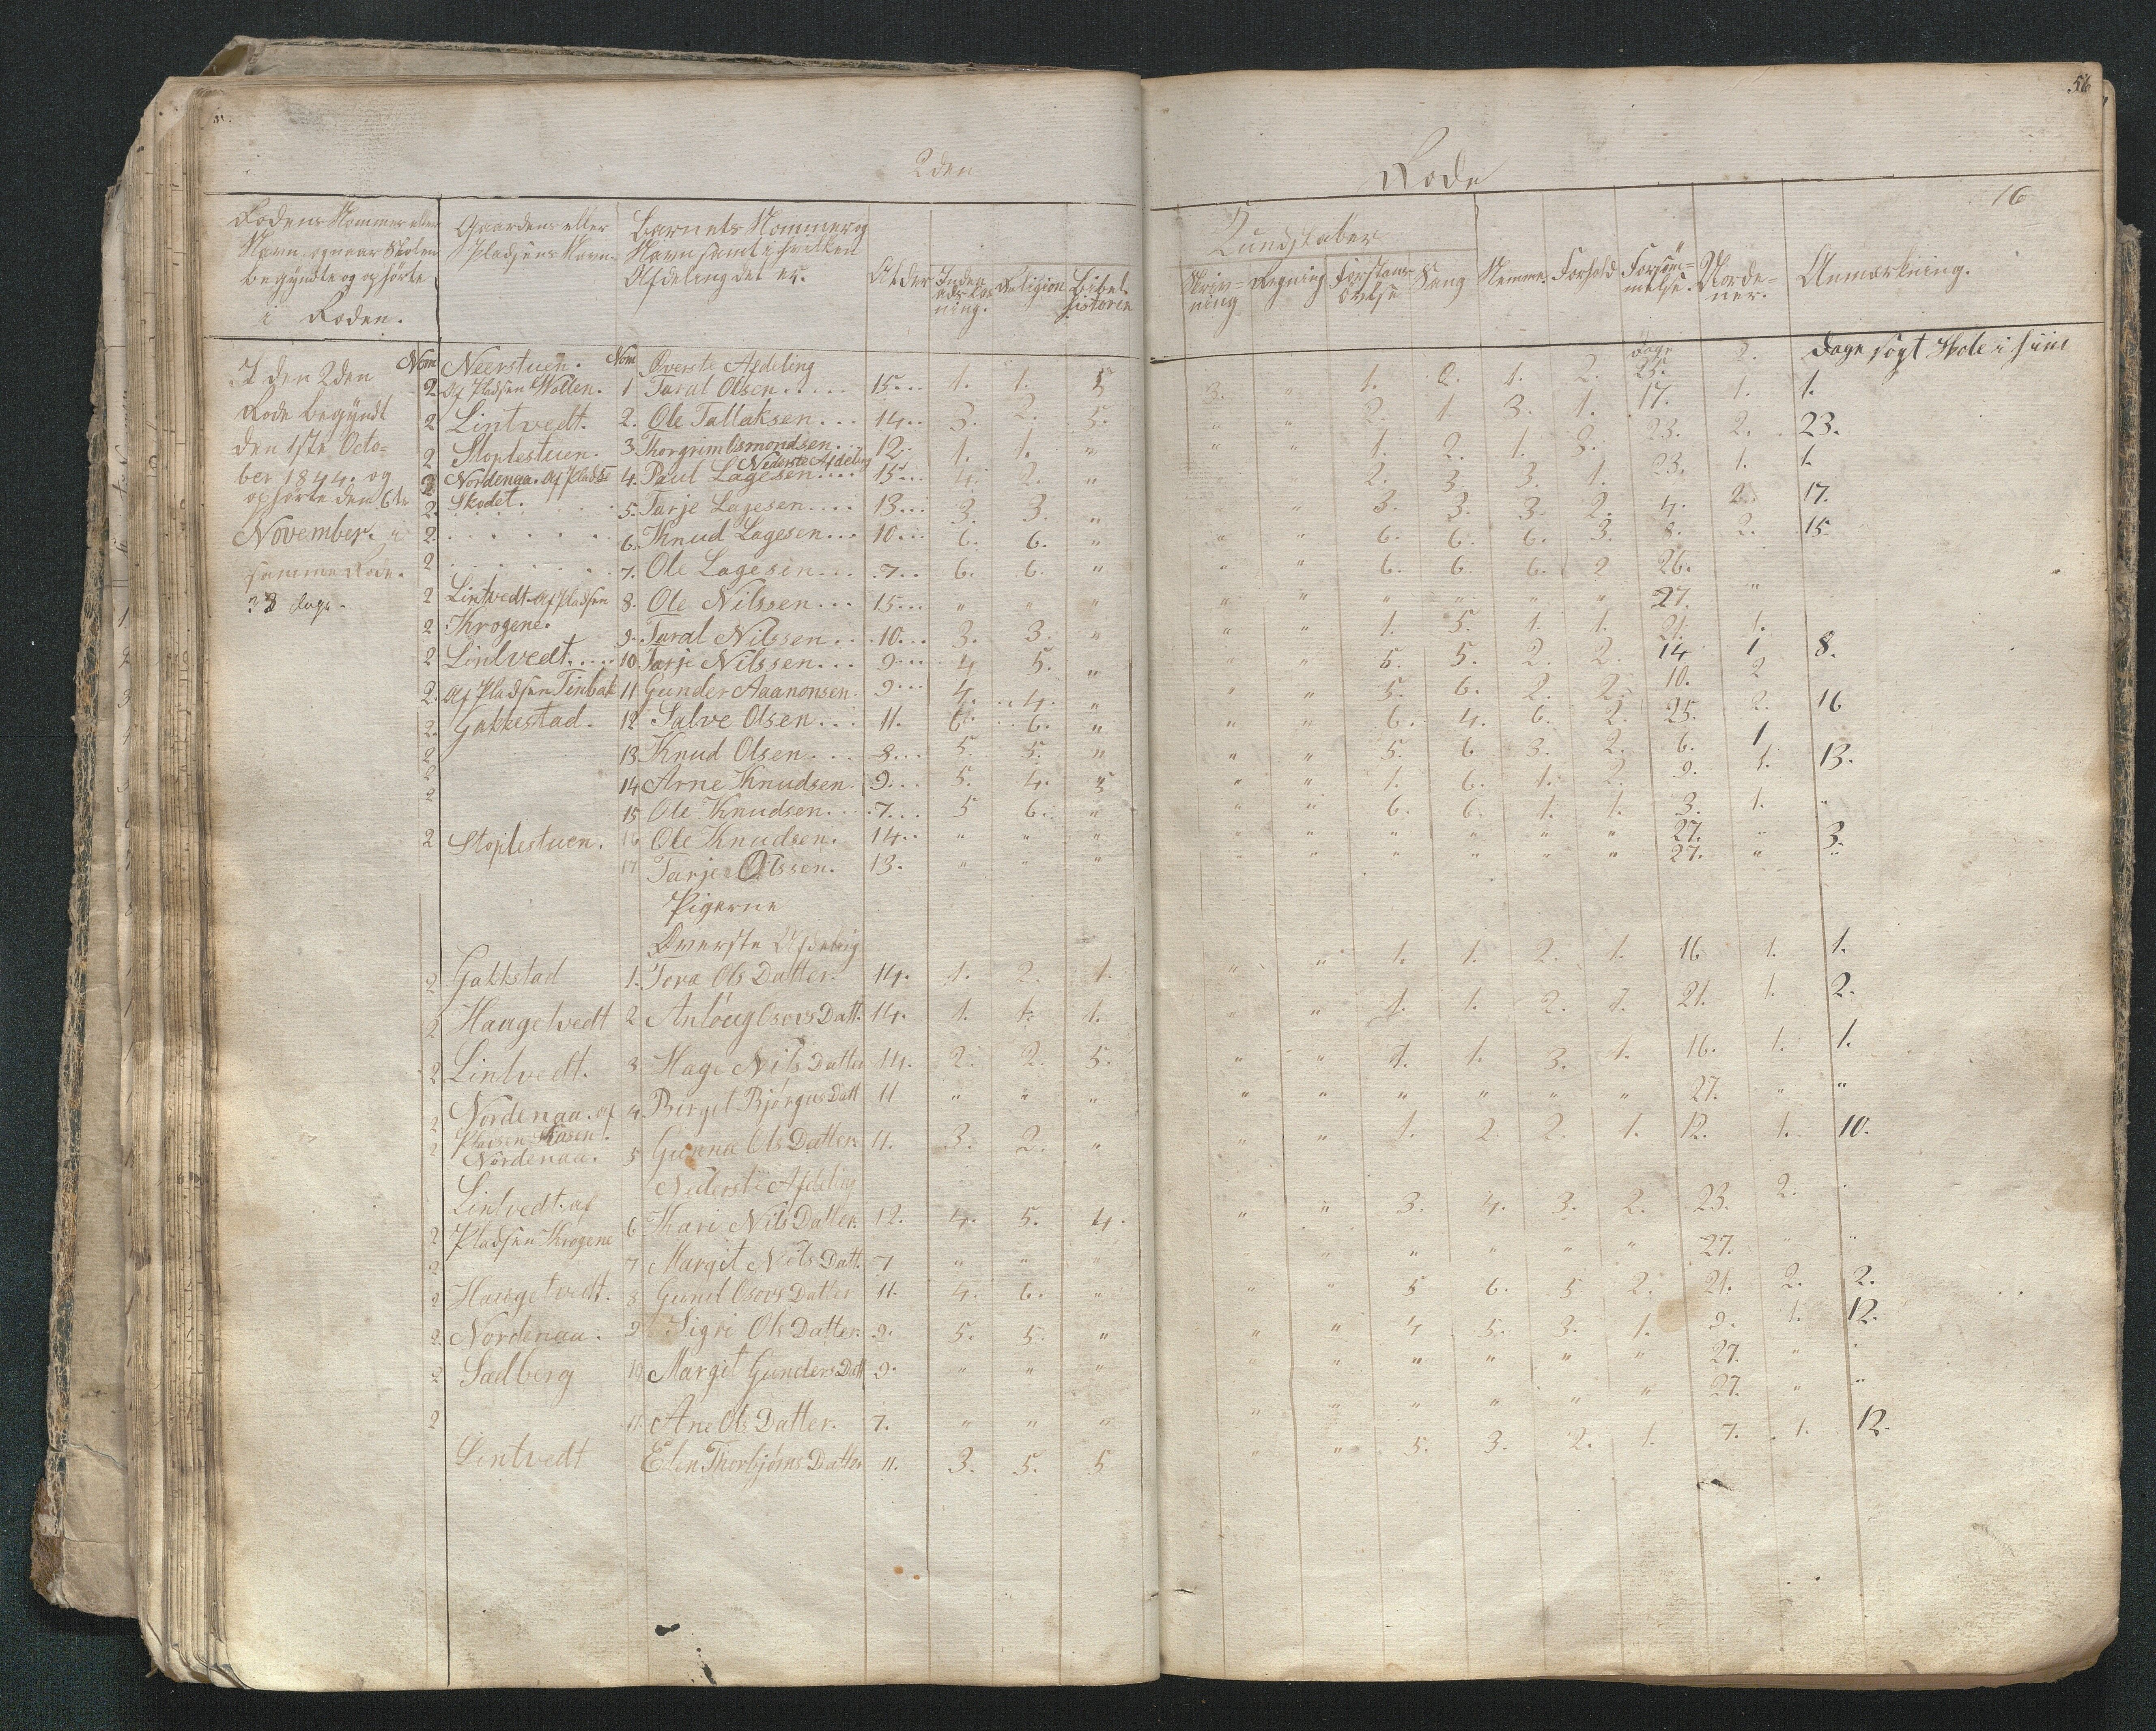 56
2den Rode
16
Rodens Nommer eller Navn, og naar Skolen begyndte og ophörte i Roden.
Gaardens eller Pladsens Navn.
Barnets Nommer og Navn samt i hvilken Afdeling det er.
Alder
Inden ads Læsning.
Religion
Bibelhistorie
Kundskaber
Skrivning
Regning
Forstandsövelse
Sang
Nemme.
Forhold
Forsömmelse.
Anmærkning.
I den 2den
Rode begyndt
den 1ste Octo-
ber 1844. og
ophörte den 6te
November. i
samme Rode.
33 dage.
Nom Neerstuen. Nom Överste Afdeling dage Dage sögt Skole i
2. Af Pladsen Wollen. 1 Taral Olsen..... 15... 1. 1. 5 3. " 1. 2. 1. 2. 25. 2.
2 Lintvedt. 2. Ole Tallaksen... 14.. 3. 2. 5. " " 2. 1 3. 1. 17. 1. 1.
2 Stoplestuen. 3 Thorgrim Osmondsen... 12. 1. 1. " " " 1. 2. 1. 2. 23. 2. 23.
Nederste Afdeling
2 Nordenaa. Af Pladse 4. Paul Lagesen.... 15... 4. 2. " 2. 3. 3. 1. 23. 1. 1.
2. Skodet. 5. Tarje Lagesen.... 13... 3. 3. " " " 3. 3. 3. 2. 4. 2. 17.
2. 6. Knud Lagesen... 10... 6. 6. " " " 6. 6. 6. 3. 8. 2. 15.
2 7. Ole Lagesen... 7.. 6. 6. " " " 6. 6. 6. 2 26.
2 Lintvedt. Af Pladsen 8. Ole Nilssen... 15... " " " " " " " " " 27. "
2 Krogene. 9. Taral Nilssen.. 10... 3. 3. " " " 1. 5. 1. 1. 21. 1.
2 Lintvedt..... 10. Tarje Nilssen... 9.... 4 5. " " " 5. 5. 2. 2. 14 1 8.
2. Af Pladsen Tinbak 11 Gunder Aaanonsen. 9... 4. 4. " " " 5. 6. 2. 2. 10. 2
2. Gakkestad. 12 Salve Olsen... 11. 6. 6. " " " 6. 4. 6. 2. 25. 2. 16
2 13 Knud Olsen... 8... 5. 5. " " " 5. 6 3. 2. 6. 1
2 14 Arne Knudsen. 9... 5. 4. 5 " " 1. 6. 1. 2. 9. 1. 13.
2 15 Ole Knudsen... 7... 5 6. " " " 6. 6. 1. 1. 3. 1. "
2 Stoplestuen. 16 Ole Knudsen. 14.. " " " " " " " " 27. " 3.
17 Tarje Olssen. 13. " " " " " " " " 27. " "
Pigerne
Överste Afdeling
2 Gakkstad 1. Tora Ols Datter. 14. 1. 2. 1. " " 1. 1. 2. 1. 16 1. 1.
2 Haugetvedt 2 Anlöug Osovs Datt. 14. 1. 1. 1. " " 1. 1. 2. 1. 21. 1. 2.
2 Lintvedt. 3 Hage Nils Datter 14. 2. 2. 5. " " 1. 1. 3. 1. 16. 1. 1.
2 Nordenaa. af Pladsen Kosen. 4. Birgit Bjørgus Datt 11 " " " " " " " " " 27. " "
2 Nordenaa. 5 Gunna Ols Datter 11. 3. 2. " " " 1. 2. 2. 1. 12. 1. 10.
Nederste Afdeling
2 Lintvedt. af Pladsen Krogene 6 Kari Nils Datter. 12. 4. 5. 4. " " 3. 4. 3. 2. 23. 2.
2 7 Margit Nils Datt. 7 " " " " " " " " 27. " "
2 Haugetvedt. 8 Guneld Osovs Datter 11. 4. 6. " " " 5 6. 5 2. 21. 2. 2.
2. Nordenaa. 9 Sigri Ols Datter. 9. 5. 5. " " " 4 5. 3. 1. 9. 1. 12.
2 Sædberg 10 Margit Gunders Datt 9. " " " " " " " " " 27. "
2 11. Ane Ols Datter. 7. " " " " " " " " " 27. " "
Lintvedt Elen Thorbjörns Datter 11. 3. 5. 5 " " 5. 3. 2. 1. 7. 1. 12.